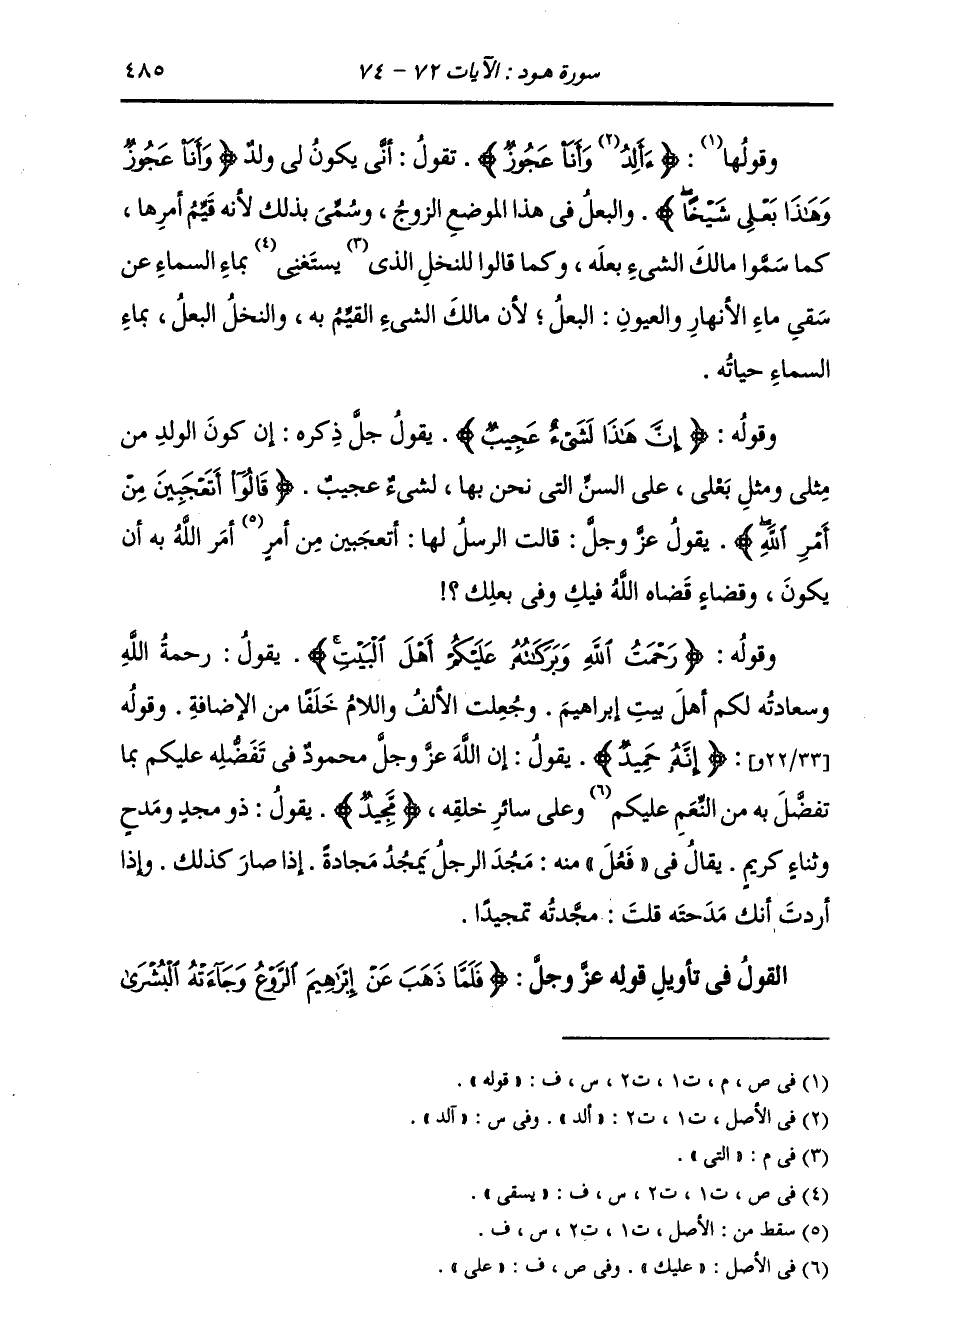 سورة هود : الآيات ٧٢ - ٧٤ ٤٨٥
وقولُها(١) : ﴿ ءَأَلِدُ(٢) وَأَنَا۠ عَجُوزٌ ﴾ . تقولُ : أنَّى يكونُ لى ولدٌ ﴿ وَأَنَا۠ عَجُوزٌ
وَهَٰذَا بَعْلِى شَيْخًاۖ ﴾ . والبعلُ فى هذا الموضعِ الزوجُ ، وسُمِّىَ بذلك لأنه قَيِّمُ أمرِها ،
كما سَمَّوا مالكَ الشىءِ بعلَه ، وكما قالوا للنخلِ الذى(٣) يستَغنِى(٤) بماءِ السماءِ عن
سَقيِ ماءِ الأنهارِ والعيونِ : البعلُ ؛ لأن مالكَ الشىءِ القيِّمُ به ، والنخلُ البعلُ ، بماءِ
السماءِ حياتُه .
وقولُه : ﴿ إِنَّ هَٰذَا لَشَىْءٌ عَجِيبٌ ﴾ . يقولُ جلَّ ذِكره : إن كونَ الولدِ من
مِثلى ومثلِ بَعْلى ، على السنِّ التى نحن بها ، لشىءٌ عجيبٌ . ﴿ قَالُوٓا۟ أَتَعْجَبِينَ مِنْ
أَمْرِ ٱللَّهِۖ ﴾ . يقولُ عزَّ وجلَّ : قالت الرسلُ لها : أتعجَبين مِن أمرٍ(٥) أمَر اللَّهُ به أن
يكونَ ، وقضاءٍ قَضاه اللَّهُ فيكِ وفى بعلِك ؟!
وقولُه : ﴿ رَحْمَتُ ٱللَّهِ وَبَرَكَٰتُهُۥ عَلَيْكُمْ أَهْلَ ٱلْبَيْتِۚ ﴾ . يقولُ : رحمةُ اللَّهِ
وسعادتُه لكم أهلَ بيتِ إبراهيمَ . وجُعِلت الألفُ واللامُ خَلَفًا من الإضافةِ . وقولُه
[٢٢/٣٣و] : ﴿ إِنَّهُۥ حَمِيدٌ ﴾ . يقولُ : إن اللَّهَ عزَّ وجلَّ محمودٌ فى تَفَضُّلِه عليكم بما
تفضَّلَ به من النِّعَمِ عليكم(٦) وعلى سائرِ خلقِه ، ﴿ مَّجِيدٌ ﴾ . يقولُ : ذو مجدٍ ومَدحٍ
وثناءٍ كريمٍ . يقالُ فى « فَعُلَ » منه : مَجُدَ الرجلُ يَمجُدُ مَجادةً . إذا صارَ كذلك . وإذا
أردتَ أنك مَدَحتَه قلتَ : مجَّدتُه تمجيدًا .
القولُ فى تأويلِ قولِه عزَّ وجلَّ : ﴿ فَلَمَّا ذَهَبَ عَنْ إِبْرَٰهِيمَ ٱلرَّوْعُ وَجَآءَتْهُ ٱلْبُشْرَىٰ
(١) فى ص ، م ، ت١ ، ت٢ ، س ، ف : « قوله » .
(٢) فى الأصل ، ت١ ، ت٢ : « ألد » . وفى س : « آلد » .
(٣) فى م : « التى » .
(٤) فى ص ، ت١ ، ت٢ ، س ، ف : « يسقى » .
(٥) سقط من : الأصل ، ت١ ، ت٢ ، س ، ف .
(٦) فى الأصل : « عليك » . وفى ص ، ف : « على » .